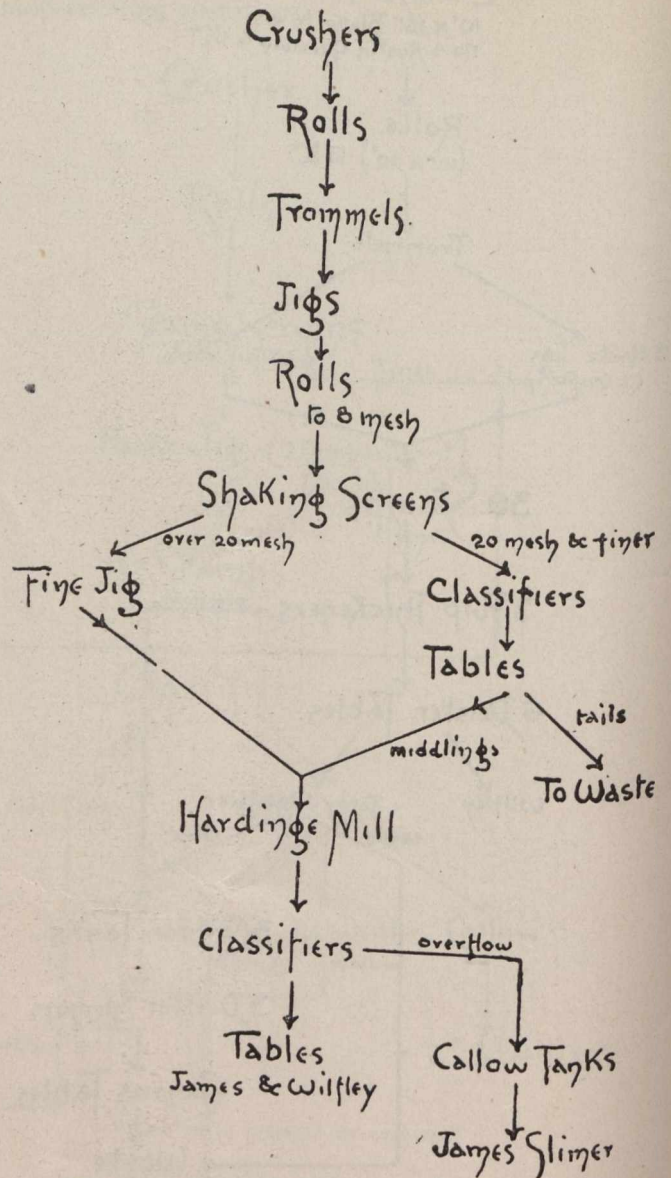 Crushers
Rolls
Trommels.
Jigs
Rolls
to 8 mesh
Shaking Screens
over 20 mesh
20 mesh & finer
Fine Jig
Classifiers
Tables
middlings
tails
To Waste
Hardinge Mill
Classifiers
overflow
Tables
James & Wilfley
Callow Tanks
James Slimer